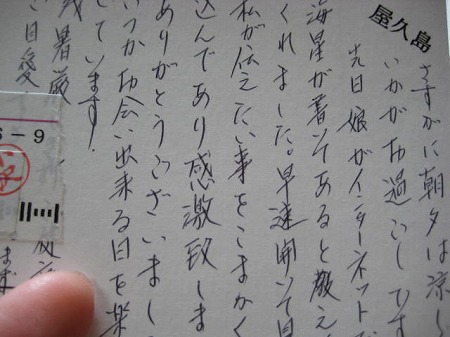 屋久島
さすがに朝夕は涼し
いかがお過ごしです
先日娘がインターネットで
海星が書いてあると教え
くれました。早速開いて見
私が伝えたい事をこまかく
込んであり感激致しま
ありがとうございまし
いつかお会い出来る日を楽
しています!
残暑厳
ご自愛
-9